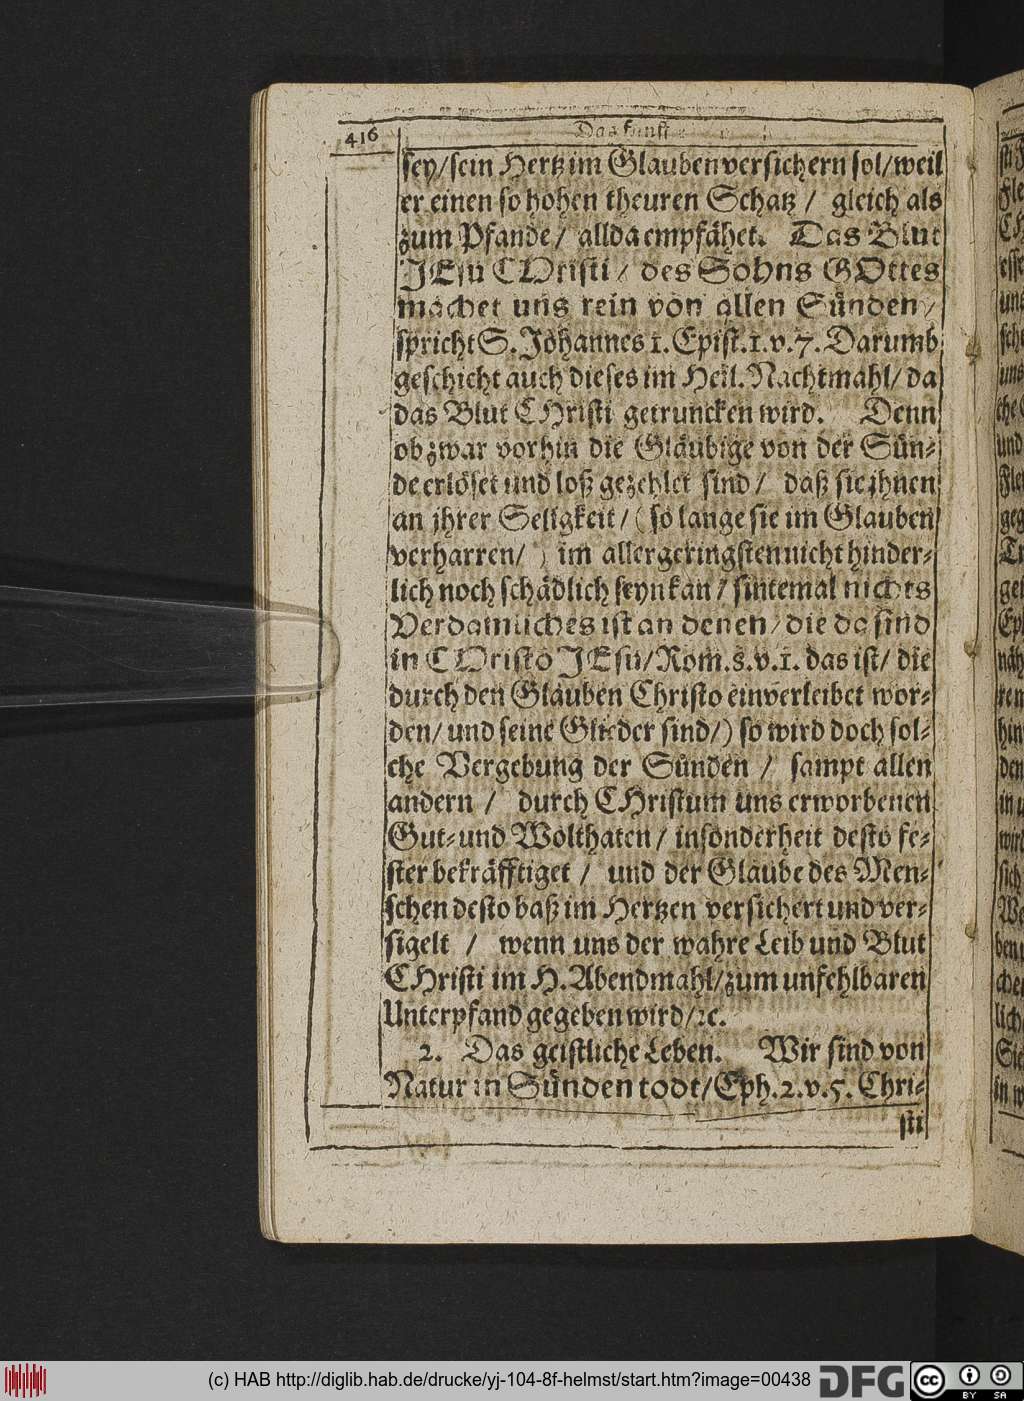 416
Das fünft
sey/sein Hertz im Glauben versichern sol/weil
er einen so hohen theuren Schatz / gleich als
zum Pfande / allda empfähet. Das Blut
JEsu CHristi / des Sohns GOttes
machet uns rein von allen Sünden /
spricht S. Johannes 1. Epist. 1. v. 7. Darumb
geschicht auch dieses im Heil. Nachtmahl/ da
das Blut CHristi getruncken wird. Denn
ob zwar vorhin die Gläubige von der Sün-
de erlöset und loß gezehlet sind / daß sie jhnen
an jhrer Seligkeit / ( so lange sie im Glauben
verharren/ ) im allergeringsten nicht hinder-
lich noch schädlich seyn kan / sintemal nichts
Verdamliches ist an denen / die da sind
in CHristo JEsu/Rom. 8. v. 1. das ist/ die
durch den Glauben Christo einverleibet wor-
den/ und seine Glieder sind/) so wird doch sol-
che Vergebung der Sünden / sampt allen
andern / durch CHristum uns erworbenen
Gut- und Wolthaten / insonderheit desto fe-
ster bekräfftiget / und der Glaube des Men-
schen desto baß im Hertzen versichert und ver-
sigelt / wenn uns der wahre Leib und Blut
CHristi im H. Abendmahl/zum unfehlbaren
Unterpfand gegeben wird/ꝛc.
2. Das geistliche Leben. Wir sind von
Natur in Sünden todt/Eph. 2. v. 5. Chri-
sti
(c) HAB http://diglib.hab.de/drucke/yj-104-8f-helmst/start.htm?image=00438
DFG
cc
BY SA